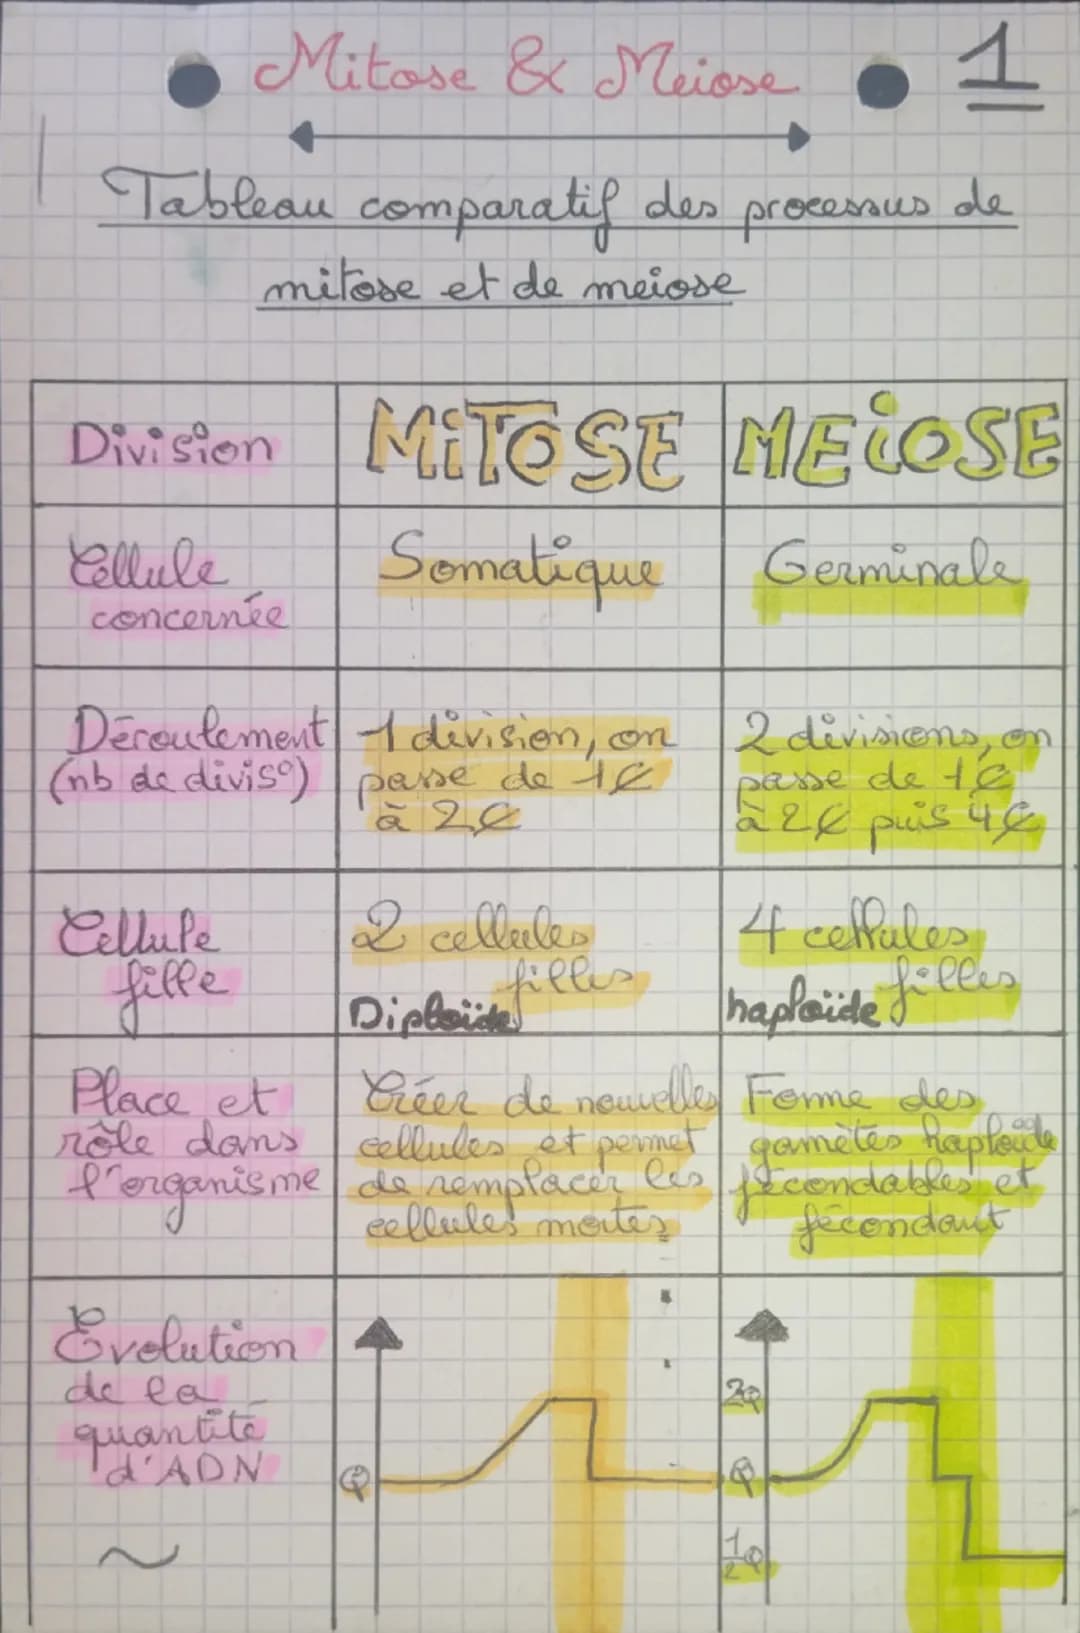 Mitose & Meiose
1
Tableau comparatif des processus de
mitose et de meiose
Division
MiTOSE
MEiOSE
Cellule
concernée
Somatique
Germinale
Déroulement
(nb de divis°)
1 division, on
passe de 1₵
à 2₵
2 divisions, on
passe de 1₵
à 2₵ puis 4₵
Cellule
fille
2 cellules
filles
Diploïde
4 cellules
filles
haploïde
Place et
rôle dans
l'organisme
Créer de nouvelles
cellules et permet
de remplacer les
cellules mortes
Forme des
gamètes haploïde
fécondables et
fécondant
Évolution
de la
quantité
d'ADN
~
Q
2Q
Q
1/2Q